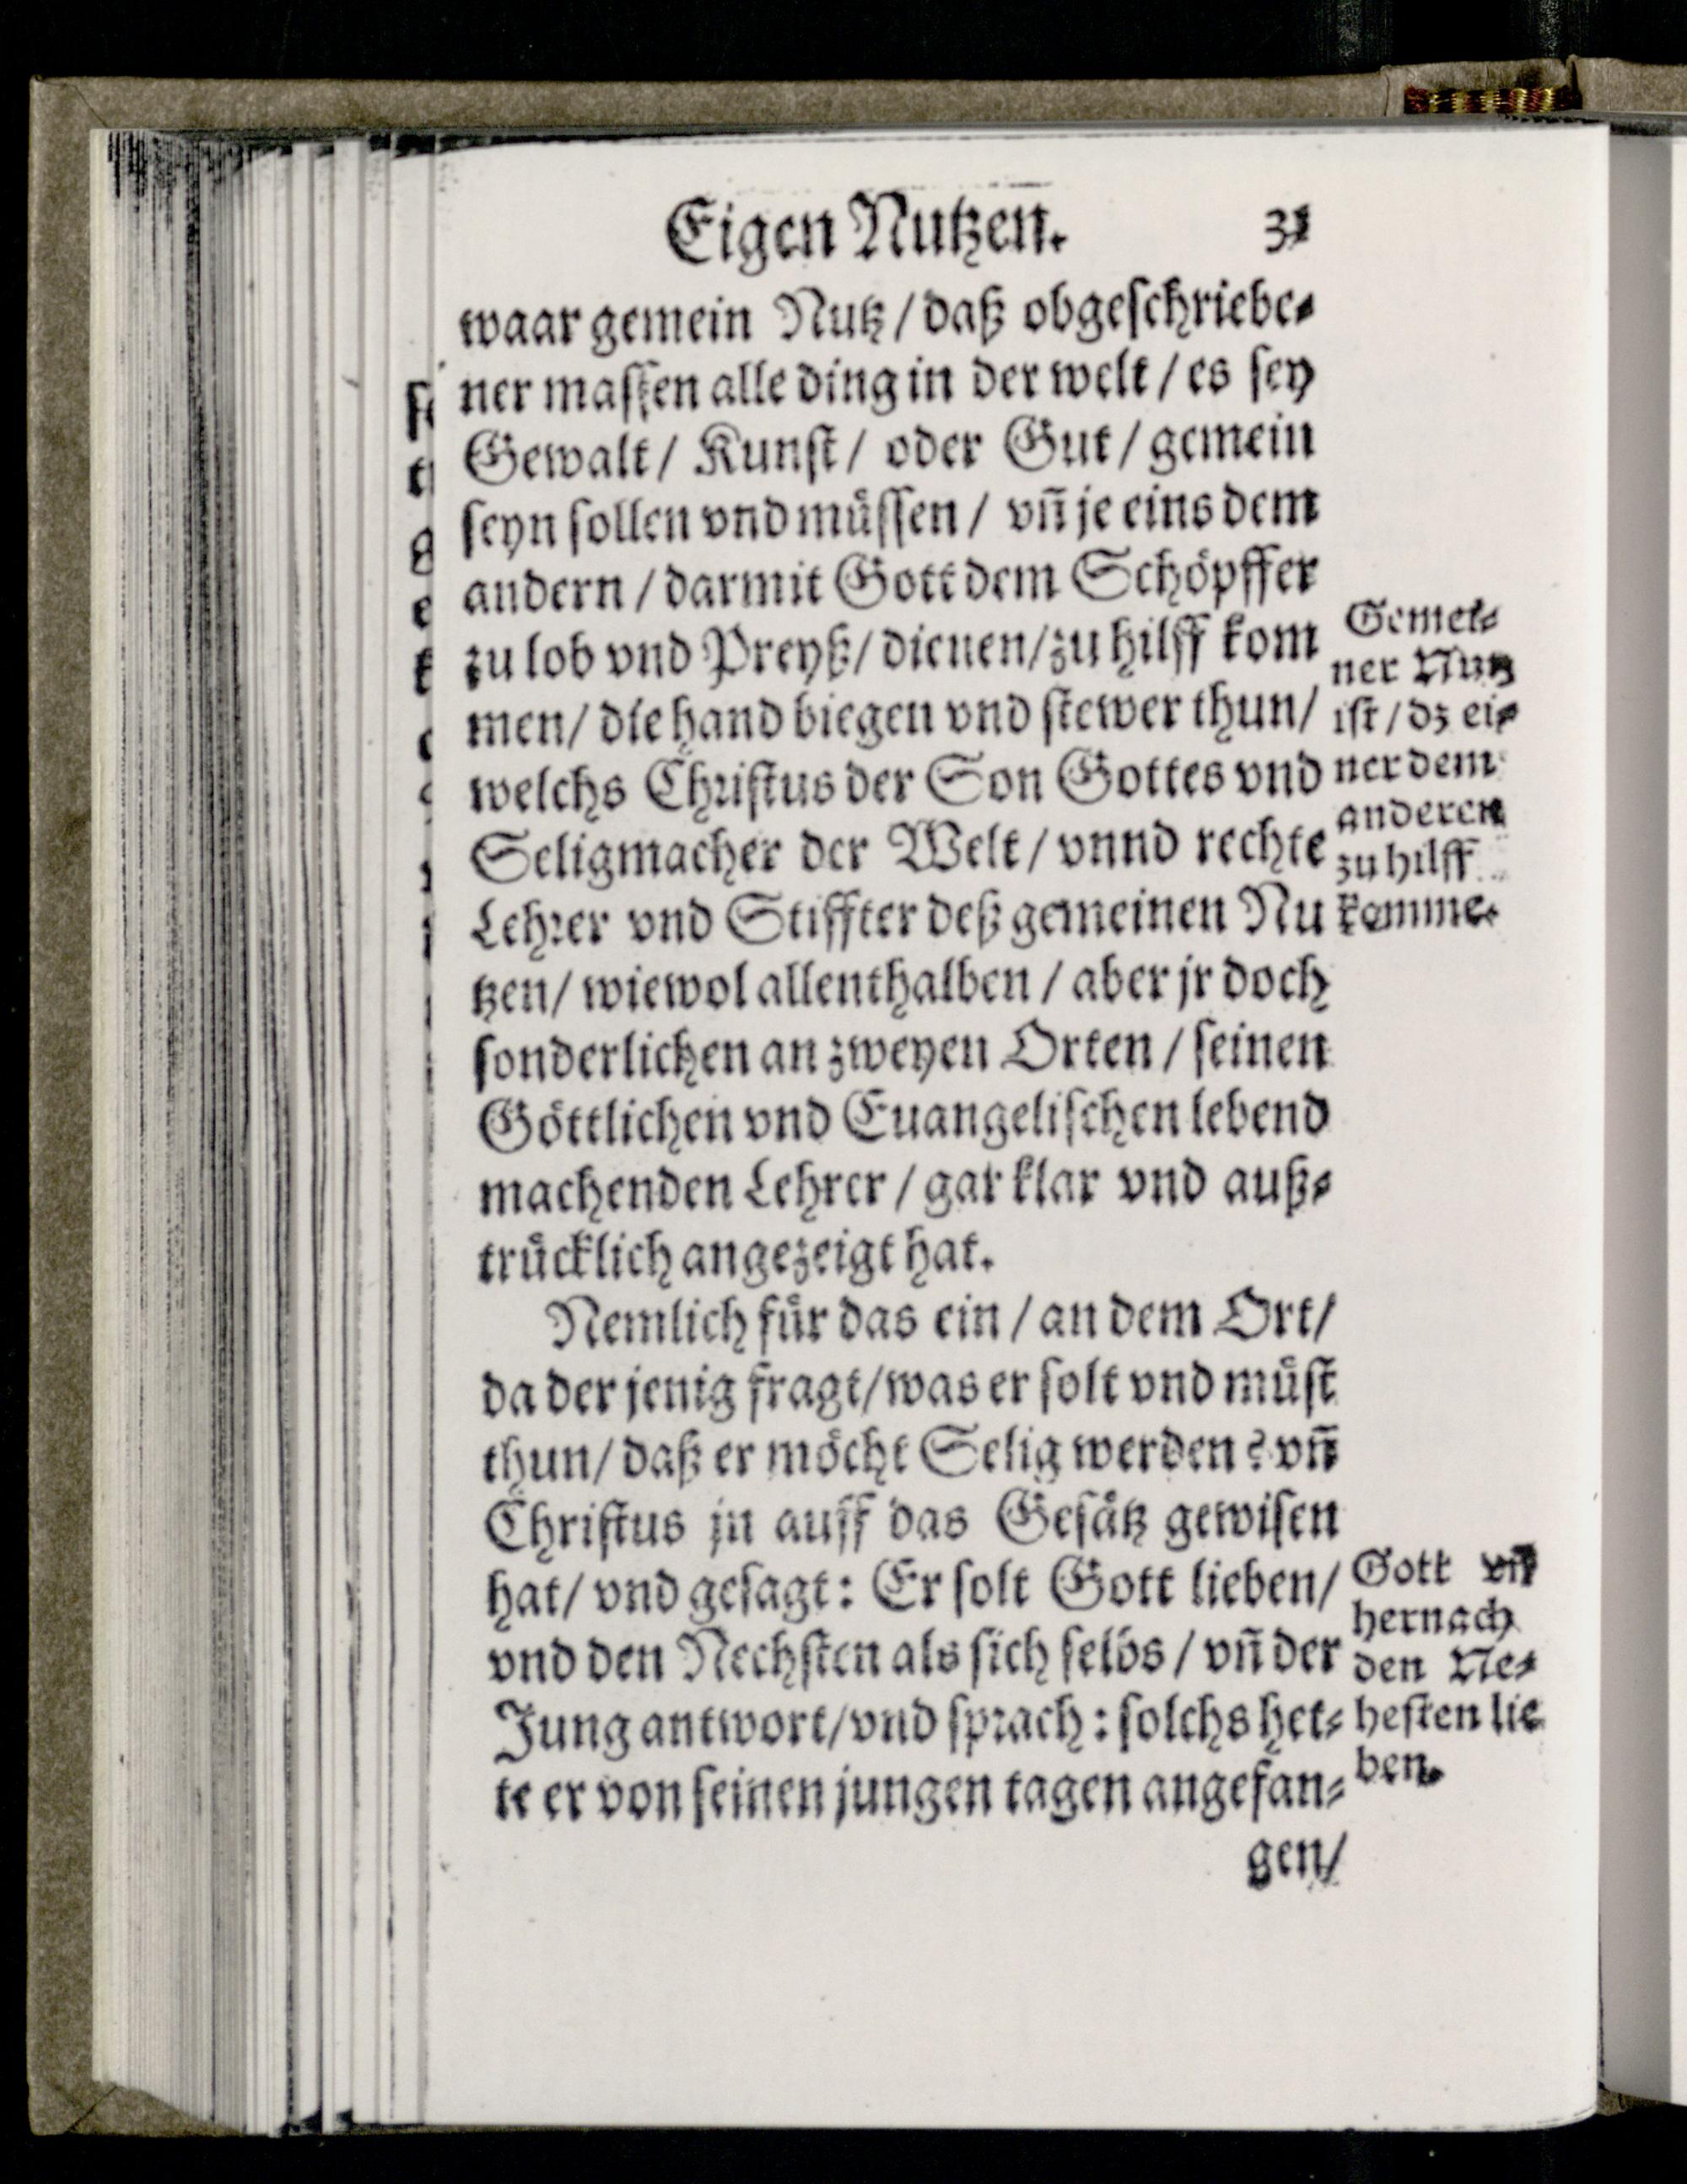 Eigen Nutzen. 31
waar gemein Nutz / daß obgeschriebe⸗
ner massen alle ding in der welt / es sey
Gewalt / Kunst / oder Gut / gemein
seyn sollen vnd müssen / vñ je eins dem
andern / darmit Gott dem Schöpffer
zu lob vnd Preyß / dienen / zu hilff kom
men / die hand biegen vnd stewer thun /
welchs Christus der Son Gottes vnd
Seligmacher der Welt / vnnd rechte
Lehrer vnd Stiffter deß gemeinen Nu
tzen / wiewol allenthalben / aber jr doch
sonderlichen an zweyen Orten / seinen
Göttlichen vnd Euangelischen lebend
machenden Lehrer / gar klar vnd auß⸗
trücklich angezeigt hat.
Gemei⸗
ner Nutz
ist / dz ei⸗
ner dem
anderen
zu hilff
komme.
Nemlich für das ein / an dem Ort /
da der jenig fragt / was er solt vnd müst
thun / daß er möcht Selig werden? vñ
Christus jn auff das Gesätz gewisen
hat / vnd gesagt: Er solt Gott lieben /
vnd den Nechsten als sich selbs / vñ der
Jung antwort / vnd sprach: solchs het⸗
te er von seinen jungen tagen angefan⸗
Gott vñ
hernach
den Ne⸗
hesten lie
ben.
gen /